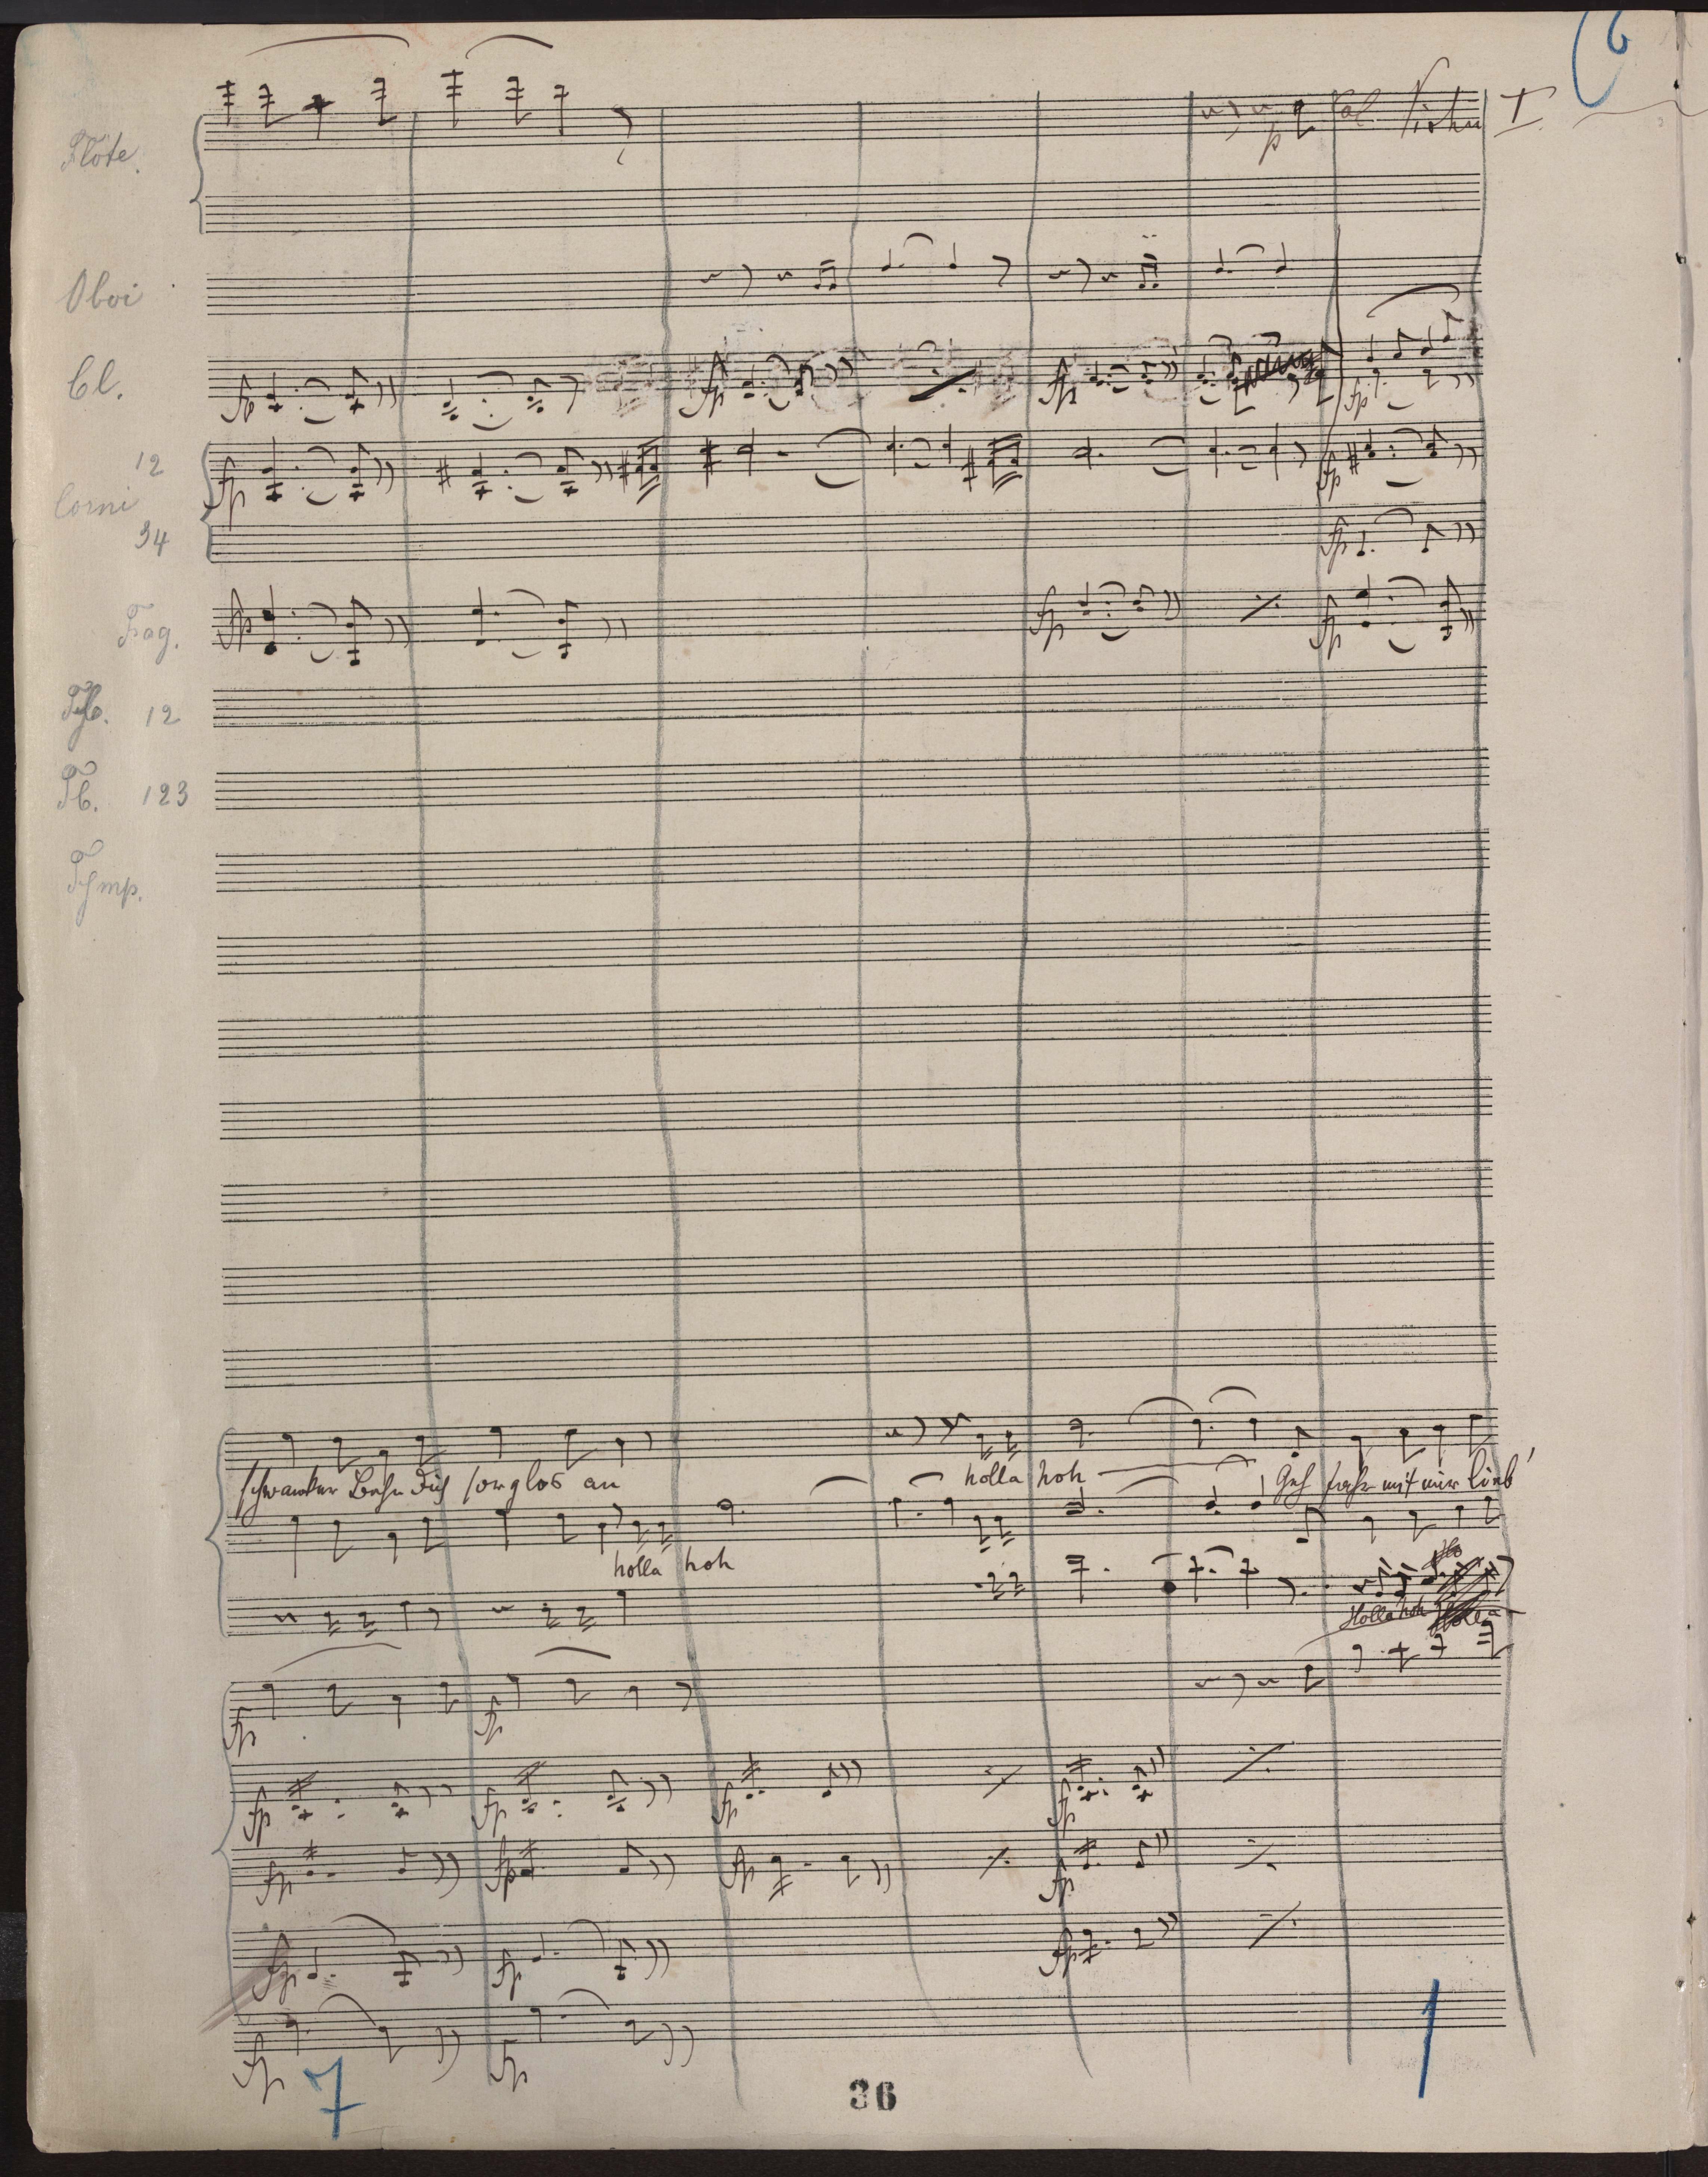 6
Flöte.
p Col Violin I.
Oboi
Cl.
fp fp fp fp
12
Corni
34
fp fp
fp
Fag.
fp fp fp
12
Tb. 123
Tymp.
holla hoh
schwanker Bahn dich sorglos an
Geh fahr mit mir lieb'
holla hoh
Holla hoh Holla
fp fp
fp fp fp fp
fp fp fp fp
fp fp fp
fp fp
7
36
1